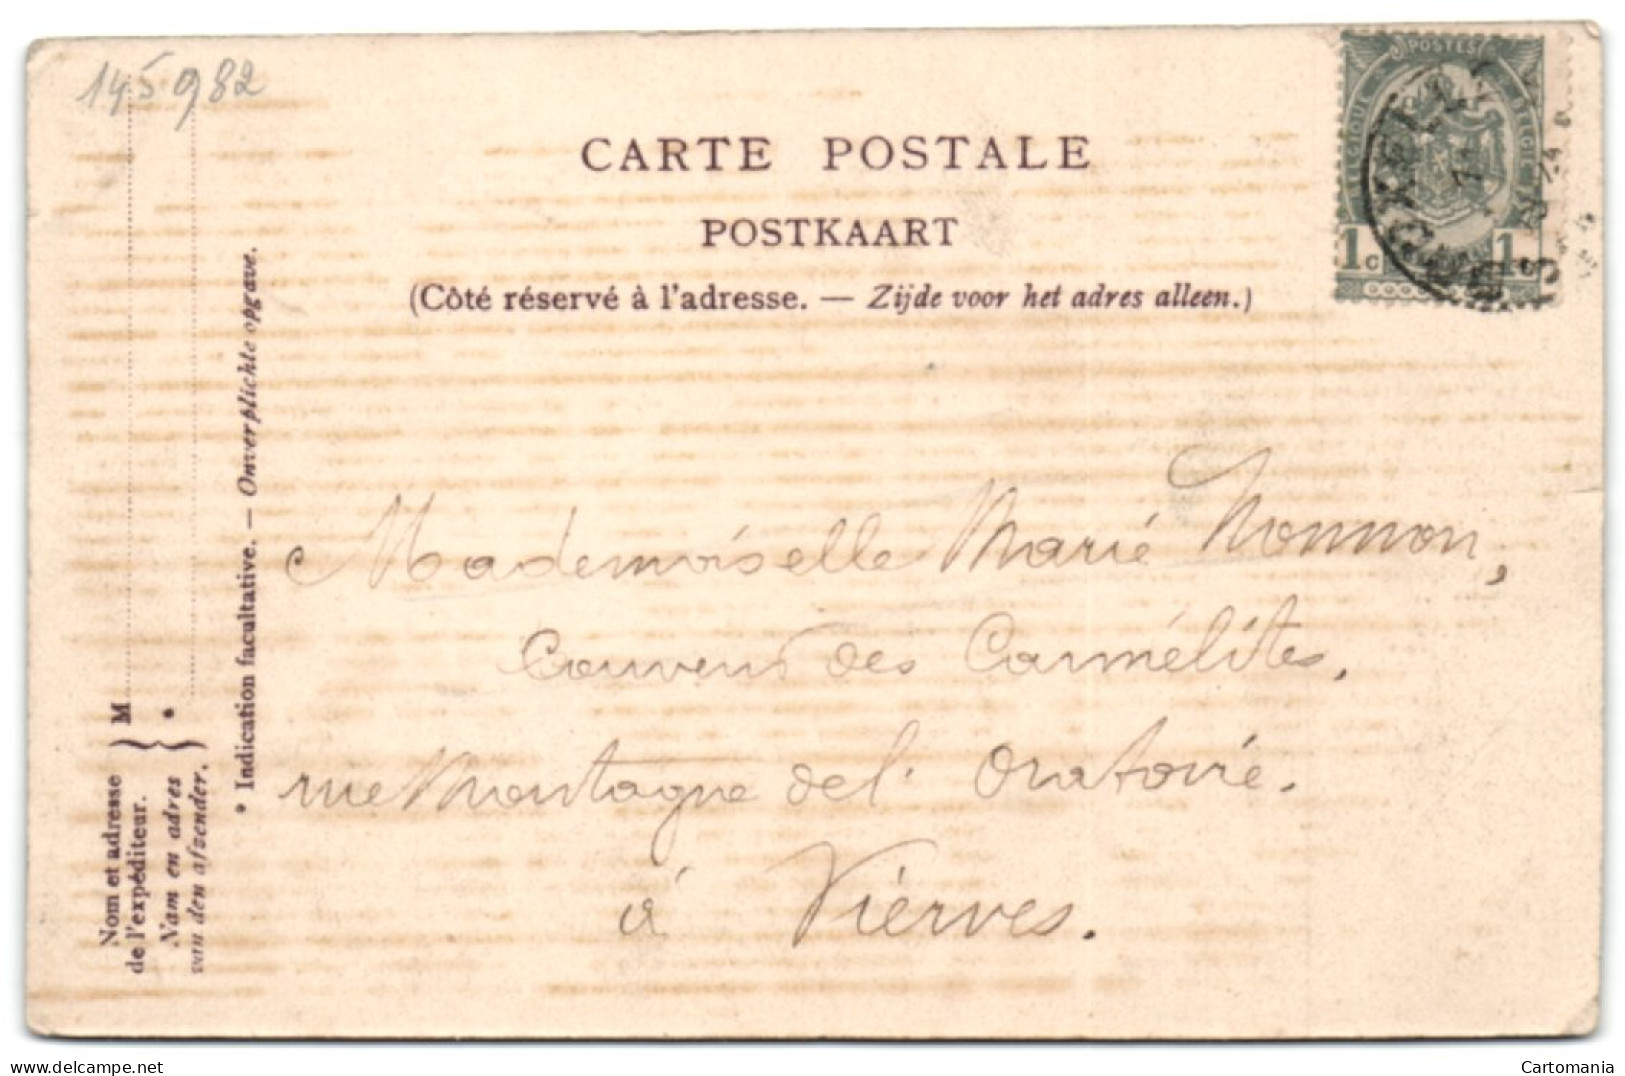 145982
CARTE POSTALE
POSTKAART
(Côté réservé à l'adresse. — Zijde voor het adres alleen.)
POSTES
BELGIQUE BELGIË
1c 1c
Mademoiselle Marie Nonnon,
Couvent des Carmélites,
rue Montagne de l'Oratoire.
à Vierves.
M
Nom et adresse
de l'expéditeur.
Nam en adres
van den afzender.
* Indication facultative. — Onverplichte opgave.
Cartomania